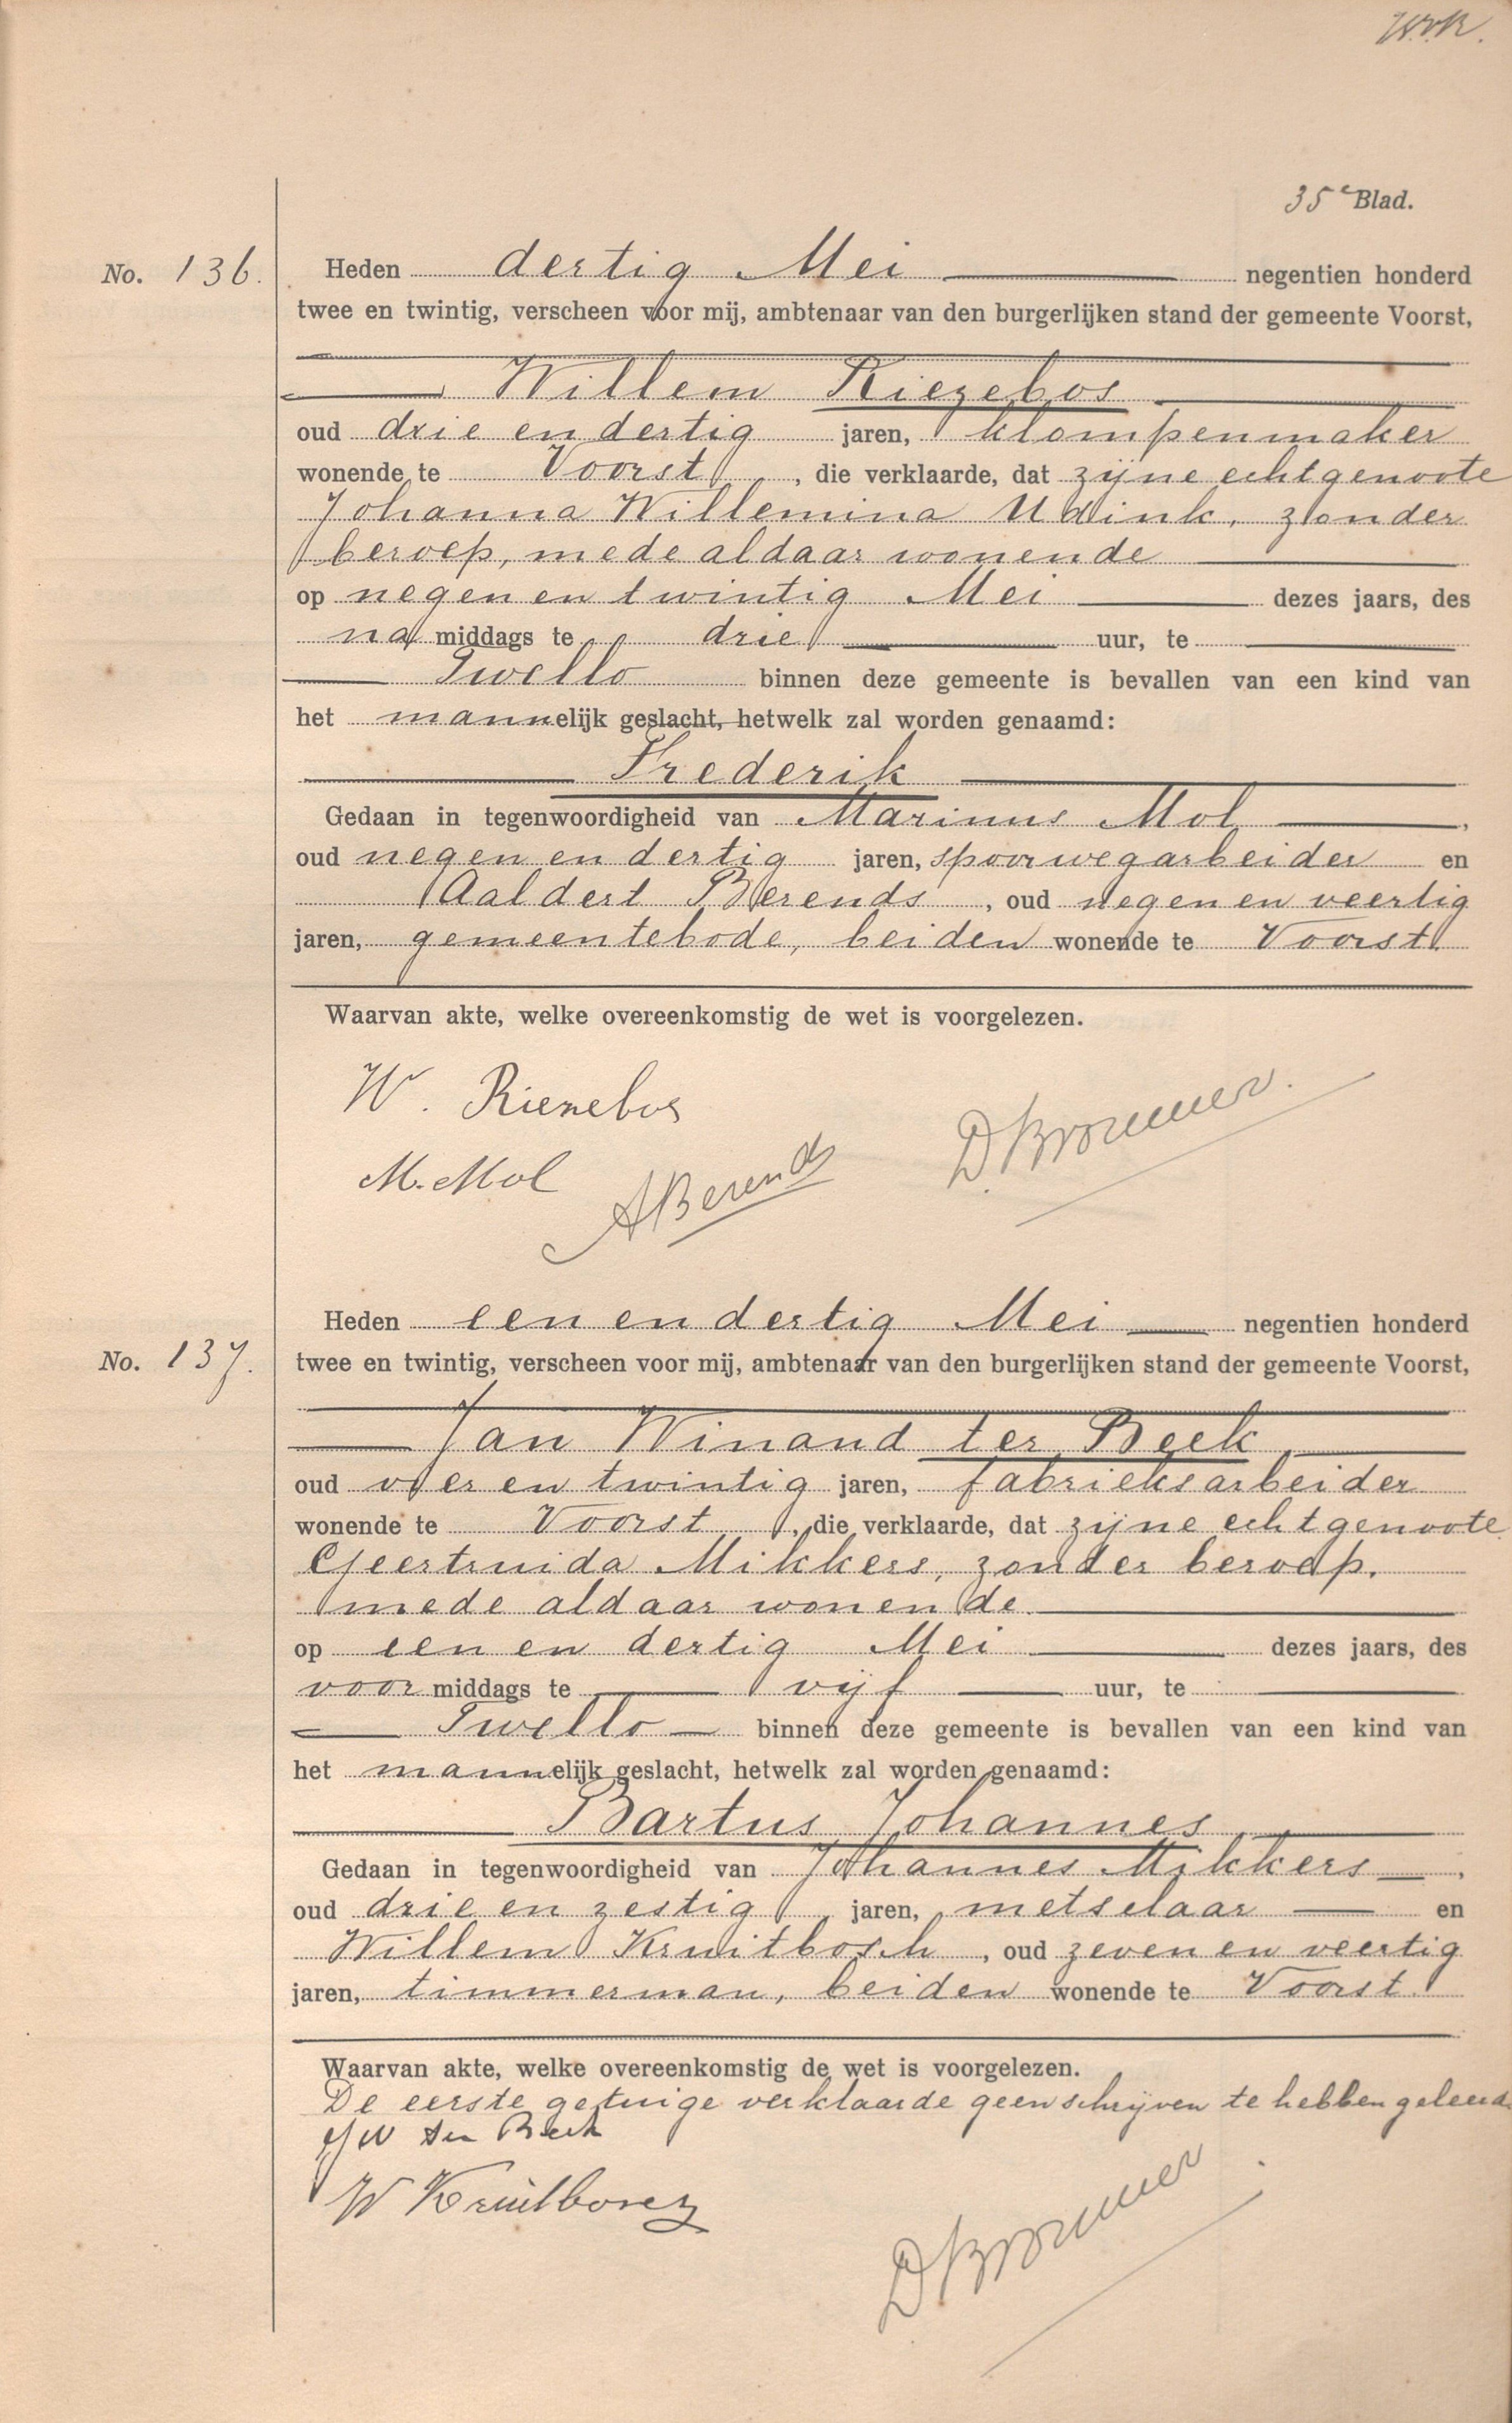 35e Blad.
No. 136.
Heden dertig Mei negentien honderd
twee en twintig, verscheen voor mij, ambtenaar van den burgerlijken stand der gemeente Voorst,
Willem Riezebos
oud drie en dertig jaren, klompenmaker
wonende te Voorst, die verklaarde, dat zijne echtgenoote
Johanna Willemina Udink, zonder
beroep, mede aldaar wonende
op negen en twintig Mei dezes jaars, des
na middags te drie uur, te
Twello binnen deze gemeente is bevallen van een kind van
het mannelijk geslacht, hetwelk zal worden genaamd:
Frederik
Gedaan in tegenwoordigheid van Marinus Mol,
oud negen en dertig jaren, spoorwegarbeider en
Aaldert Berends, oud negen en veertig
jaren, gemeentebode, beiden wonende te Voorst.
Waarvan akte, welke overeenkomstig de wet is voorgelezen.
W. Riezebos
M. Mol ABerends DBrouwer.
No. 137.
Heden een en dertig Mei negentien honderd
twee en twintig, verscheen voor mij, ambtenaar van den burgerlijken stand der gemeente Voorst,
Jan Winand ter Beek,
oud vier en twintig jaren, fabrieksarbeider
wonende te Voorst, die verklaarde, dat zijne echtgenoote
Geertruida Mikkers, zonder beroep,
mede aldaar wonende
op een en dertig Mei dezes jaars, des
voor middags te vijf uur, te
Twello binnen deze gemeente is bevallen van een kind van
het mannelijk geslacht, hetwelk zal worden genaamd:
Bartus Johannes
Gedaan in tegenwoordigheid van Johannes Mikkers,
oud drie en zestig jaren, metselaar en
Willem Kruitbosch, oud zeven en veertig
jaren, timmerman, beiden wonende te Voorst.
Waarvan akte, welke overeenkomstig de wet is voorgelezen.
De eerste getuige verklaarde geen schrijven te hebben geleerd.
JW ter Beek
W Kruitbosch
DBrouwer